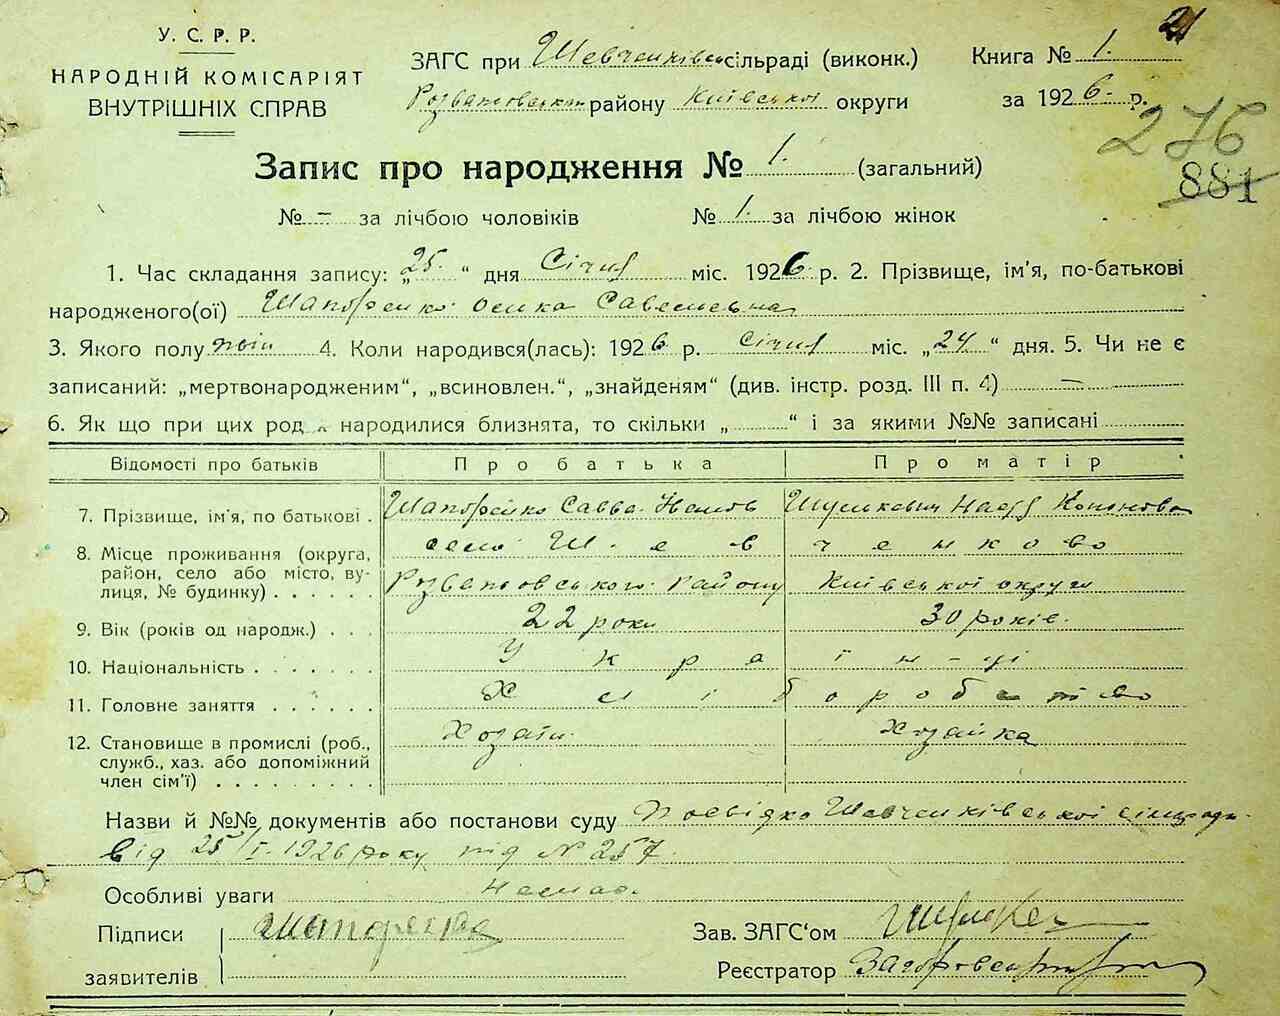 У. С. Р. Р.
НАРОДНІЙ КОМІСАРІЯТ
ВНУТРІШНІХ СПРАВ
ЗАГС при Шевченківск сільраді (виконк.)
Розважовському району Київської округи
Книга № 1. 21
за 1926. р.
276
881
Запис про народження № 1. (загальний)
№ – за лічбою чоловіків № 1. за лічбою жінок
1. Час складання запису: „25.“ дня Січня міс. 1926. р. 2. Прізвище, ім'я, по-батькові
народженого(ої) Шапорейко Савельевна
3. Якого полу жін 4. Коли народився(лась): 1926 р. Січня міс. „24“ дня. 5. Чи не є
записаний: „мертвонародженим“, „всиновлен.“, „знайденям“ (див. інстр. розд. III п. 4) —
6. Як що при цих род х народилися близнята, то скільки „ “ і за якими №№ записані
Відомості про батьків Про батька Про матір
7. Прізвище, ім'я, по батькові . Шапорейко Савва Іванов Шулькевич Надя Кононова
8. Місце проживання (округа, село Шевченково
район, село або місто, ву- Розважовського Району Київської округи
лиця, № будинку) . . . . . .
9. Вік (років од народж.) . . . 22 роки 30 років.
10. Національність . . . . . . . Українці
11. Головне заняття . . . . . . Хліборобство
12. Становище в промислі (роб., Хозяїн. Хозяйка
служб., хаз. або допоміжний
член сім'ї) . . . . . . . . .
Назви й №№ документів або постанови суду Посвідка Шевченківської сільради
від 25/I-1926 року під № 257.
Особливі уваги немає.
Підписи Шапорейко Зав. ЗАГС'ом
заявителів Реєстратор